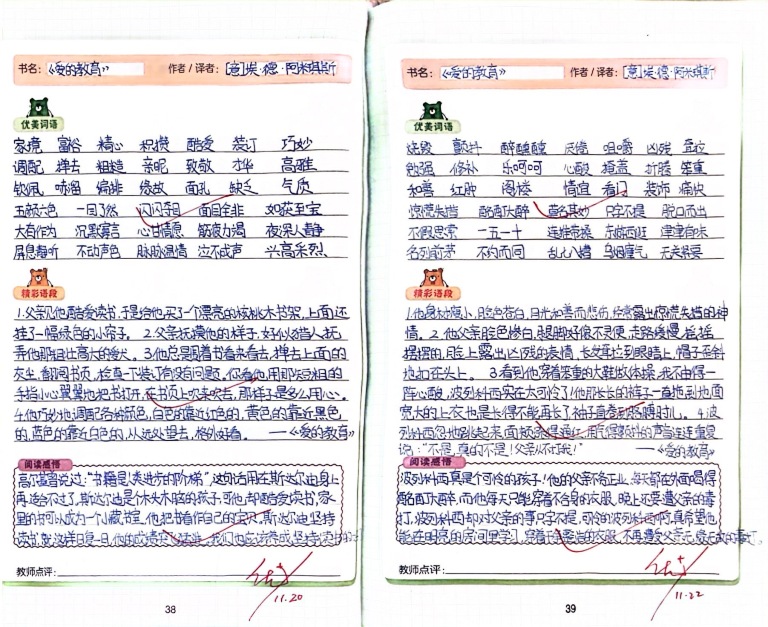 书名：《爱的教育》 作者/译者：[意]埃·德·阿米琪斯
优美词语
家境 富裕 精心 积攒 酷爱 装订 巧妙
调配 掸去 粗糙 亲昵 致敬 才华 高雅
钦佩 咏唱 编排 缘故 面孔 缺乏 气质
五颜六色 一目了然 闪闪夺目 面目全非 如获至宝
大有作为 沉默寡言 心甘情愿 筋疲力竭 夜深人静
屏息静听 不动声色 脉脉温情 泣不成声 兴高采烈
精彩语段
1.父亲见他酷爱读书,于是给他买了一个漂亮的核桃木书架,上面还
挂了一幅绿色的小帘子。 2.父亲抚摸他的样子,好似猎人抚
弄他那壮大的爱犬。 3.他总是围着书看来看去,掸去上面的
灰尘,翻阅书页,检查一下装订有没有问题。你看他,用那短粗的
手指小心翼翼地把书打开,在书页上吹来吹去,那样子是多么用心。
4.他巧妙地调配各种颜色,白色的靠近红色的,黄色的靠近黑色
的,蓝色的靠近白色的,从远处望去,格外好看。 ——《爱的教育》
阅读感悟
高尔基曾说过:“书籍是人类进步的阶梯”,这句话用在斯达尔迪身上
再适合不过了,斯达尔迪是个木头木脑的孩子,可他却酷爱读书,家
里的书可以成为一个小藏书室,他把书看作自己的宝贝,斯达尔迪坚持
读书,就这样日复一日,他的成绩,我们也应该养成坚持读书的
教师点评：
11.20
38
书名：《爱的教育》 作者/译者：[意]埃·德·阿米琪斯
优美词语
烧毁 颤抖 醉醺醺 咀嚼 凶残 耷拉
勉强 修补 乐呵呵 心酸 掩盖 折腾 笨重
和善 红肿 阁楼 情谊 看门 装饰 痛快
惊慌失措 酩酊大醉 莫名其妙 只字不提 脱口而出
不假思索 一五一十 连维带操 东歪西斜 津津有味
名列前茅 不约而同 乱七八糟 乌烟瘴气 无关紧要
精彩语段
1.他身材矮小,脸色苍白,目光和善而悲伤,经常露出惊慌失措的神
情。 2.他父亲脸色惨白,腿脚好像不灵便,走路缓慢,摇摇
摆摆的,脸上露出凶残的表情,长发耷拉到眼睛上,帽子歪斜
地扣在头上。 3.看到他穿着笨重的大鞋做体操,我不由得一
阵心酸,波列科西实在太可怜了!他那长长的裤子一直拖到地面,
宽大的上衣也是长得不能再长了,袖子直卷到胳膊肘儿。 4.波
列科西忽地跳起来,面颊涨得通红,用几乎的声音连连重复
说:“不是,真的不是!父亲从不打我!” ——《爱的教育》
阅读感悟
波列科西真是个可怜的孩子!他的父亲不务正业,每天都在外面喝得
酩酊大醉,而他每天只能穿着不合身的衣服,晚上还要遭父亲的毒
打,波列科西却对父亲的事只字不提,可怜的波列科西啊,真希望他
能在明亮的房间里学习,穿着干净整洁的衣服,不再遭父亲的毒打。
教师点评：
11.22
39